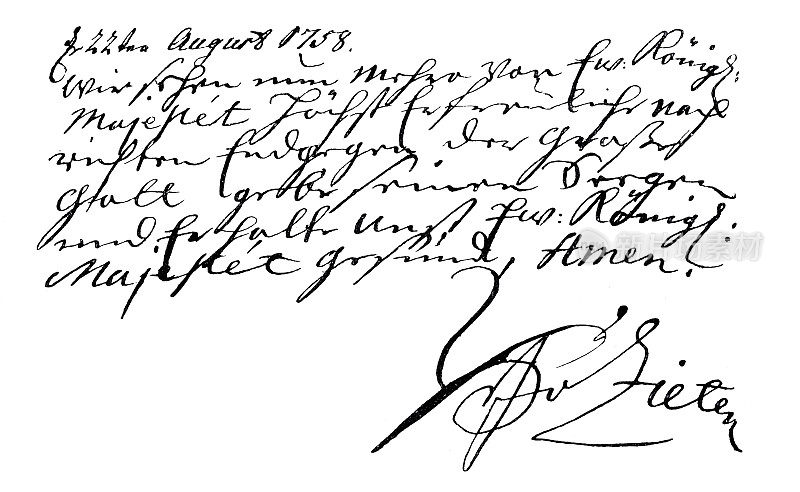 22ten August 1758.
Wir sehen nun Mehro Von Ew: Königl:
Majestét Höchst Erfreuliche nach
richten Endgegen der Große
Gott gebe seinen Seegen
und Erhalte Unß Ew: Königl:
Majestét gesund, Amen.
Zieten